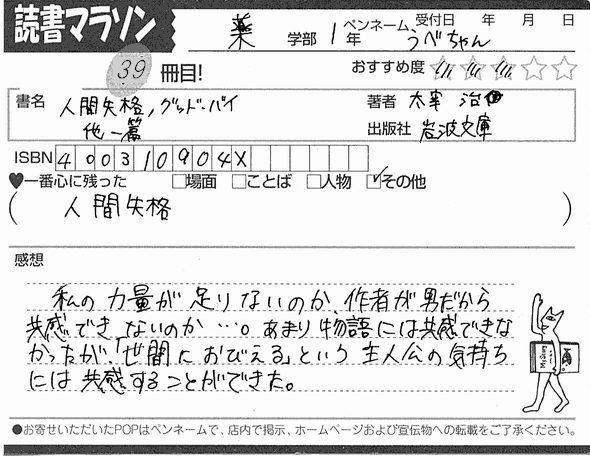 読書マラソン
薬 学部 1年
ペンネーム うべちゃん
受付日 年 月 日
39 冊目!
おすすめ度 ☆☆☆☆☆
書名 人間失格,グッド・バイ
他一篇
著者 太宰 治
出版社 岩波文庫
ISBN 400310904X
♥一番心に残った □場面 □ことば □人物 ☑その他
( 人間失格 )
感想
私の力量が足りないのか、作者が男だから
共感できないのか…。あまり物語には共感できな
かったが、「世間におびえる」という主人公の気持ち
には共感することができた。
●お寄せいただいたPOPはペンネームで、店内で掲示、ホームページおよび宣伝物への転載をご了承ください。